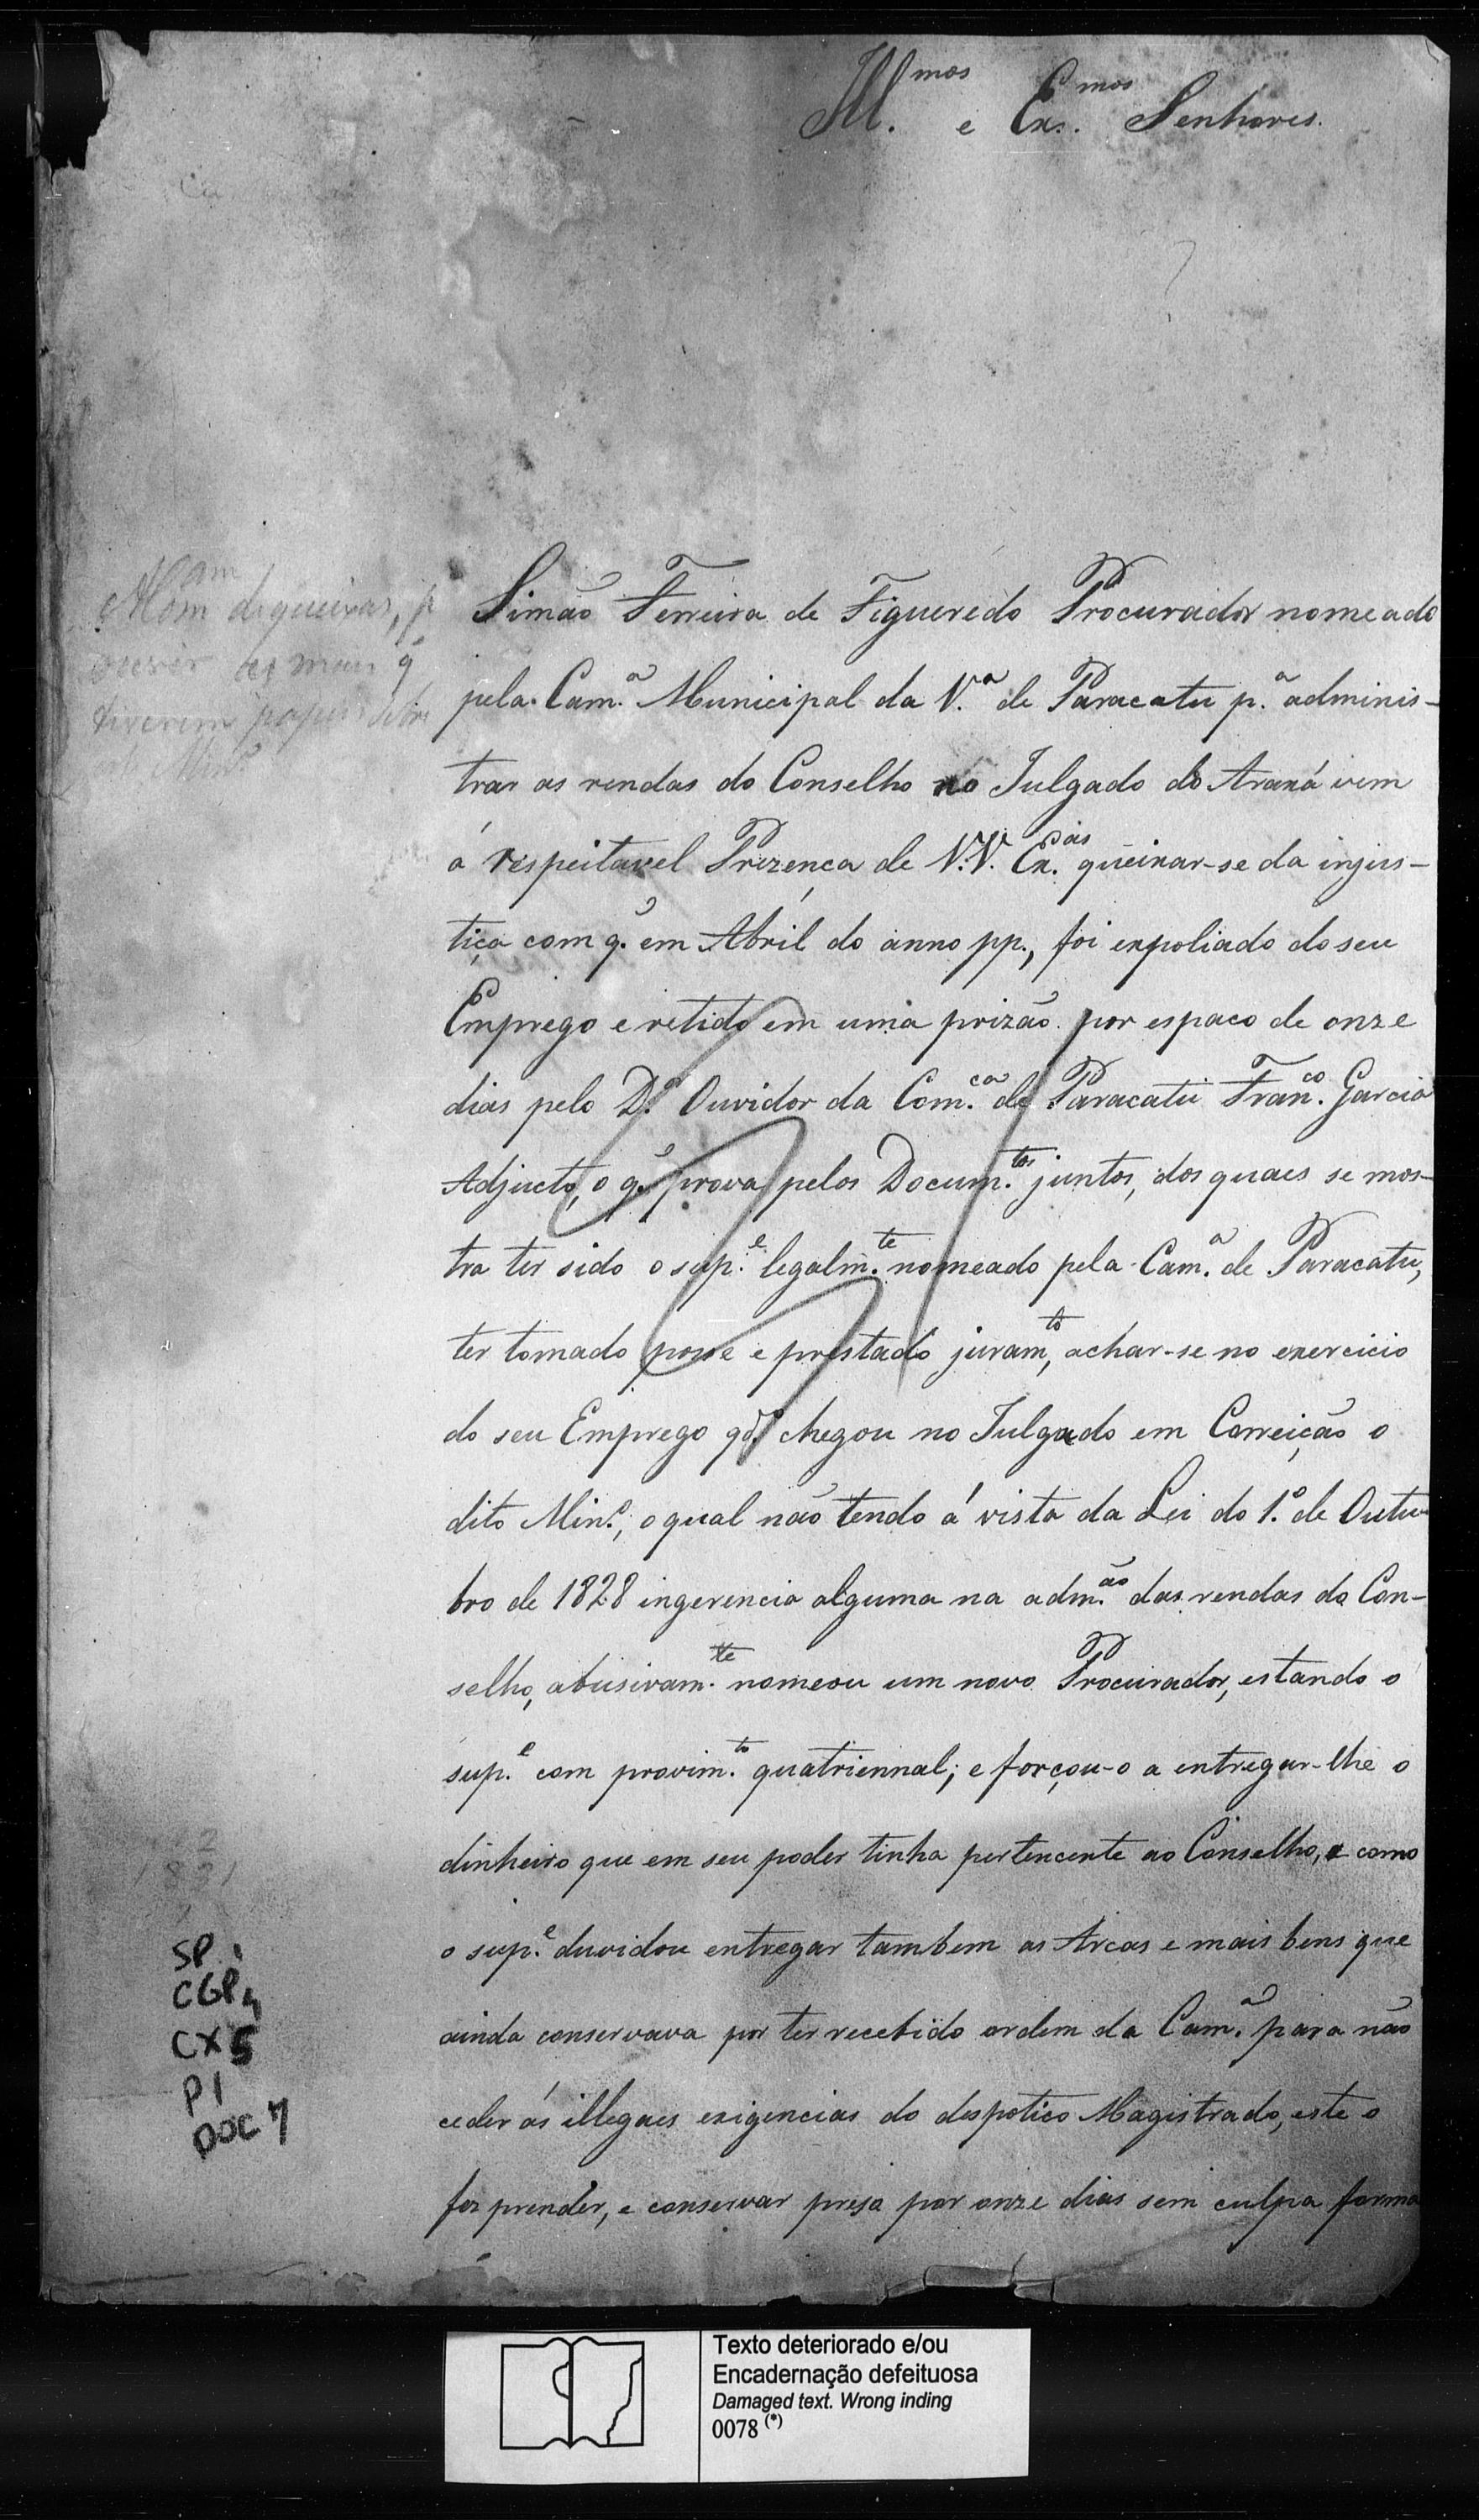 Ill.mos e Exs.mos Senhores.
Simão Ferreira de Figueredo Procurador nomeado
pela Cam.a Municipal da V.a de Paracatu p.a adminis-
trar as rendas do Conselho no Julgado do Araxá vem
á respeitavel Prezença de V.V. Ex.as queixar-se da injus-
tiça com q. em Abril do anno pp., foi expoliado do seu
Emprego e retido em uma prizão por espaco de onze
dias pelo D.r Ouvidor da Com.ca de Paracatu Fran.co Garcia
Adjucto, o q. prova pelos Docum.tos juntos, dos quaes se mos-
tra ter sido o sup.e legalm.te nomeado pela Cam.a de Paracatu,
ter tomado posse e prestado juram.to, achar-se no exercicio
do seu Emprego qd.o chegou no Julgado em Correição o
dito Min.o, o qual não tendo á vista da Lei do 1.o de Outu-
bro de 1828 ingerencia alguma na adm.ão das rendas do Con-
selho, abusivam.te nomeou um novo Procurador, estando o
sup.e com provim.to quatriennal; e forçou-o a entregar-lhe o
dinheiro que em seu poder tinha pertencente ao Conselho, e como
o sup.e duvidou entregar tambem as Arcas e mais bens que
ainda conservava por ter recebido ordem da Cam.a para não
ceder ás illegaes exigencias do despotico Magistrado, este o
fez prender, e conservar preso por onze dias sem culpa forma
tiverem papeis sobre
SP i
CGP4
CX5
P1
DOC 7
Texto deteriorado e/ou
Encadernação defeituosa
Damaged text. Wrong inding
0078 (*)